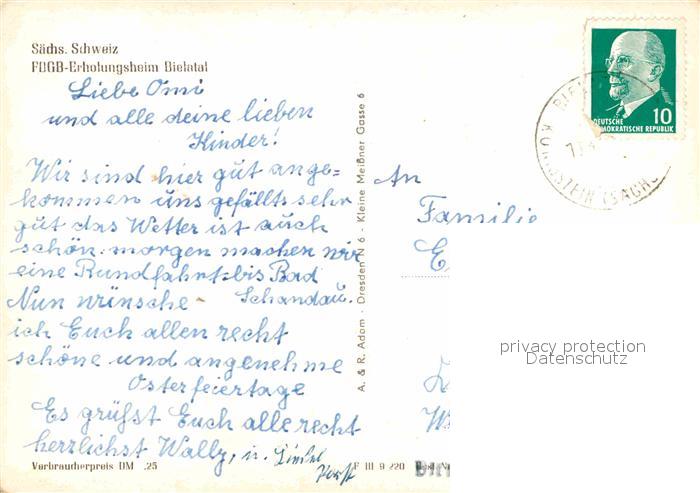 Sächs. Schweiz
FDGB-Erholungsheim Bielatal
Liebe Omi
und alle deine lieben
Kinder!
Wir sind hier gut ange=
kommen uns gefällts sehr
gut das Wetter ist auch
schön. morgen machen wir
eine Rundfahrt bis Bad
Schandau.
Nun wünsche
ich Euch allen recht
schöne und angenehme
Osterfeiertage
Es grüßst Euch alle recht
herzlichst Wally, u.
Horst
Verbraucherpreis DM .25
F III 9 220
A. & R. Adam - Dresden N 6 - Kleine Meißner Gasse 6
An
Familie
DEUTSCHE
DEMOKRATISCHE REPUBLIK
10
KÖNIGSTEIN (SÄCHS
privacy protection
Datenschutz